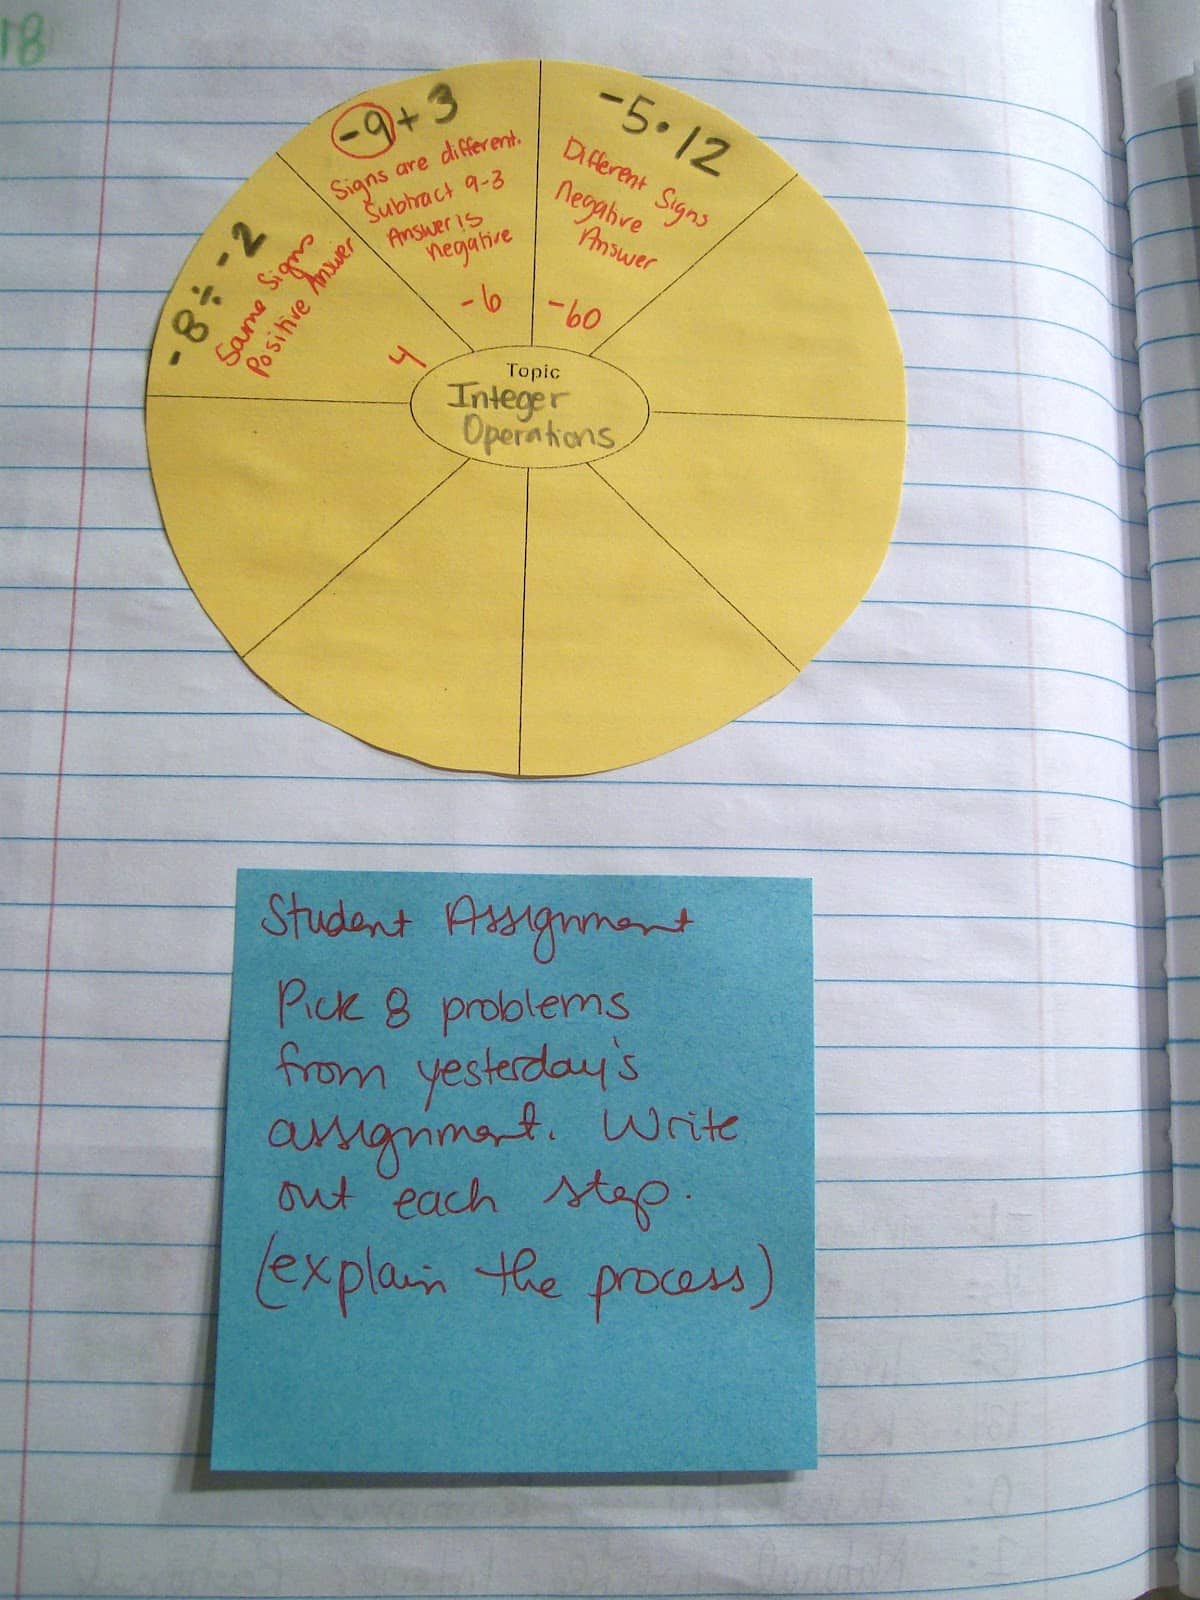 18
-8 ÷ -2
Same Signs
Positive Answer
4
-9 + 3
Signs are different.
Subtract 9-3
Answer is
negative
-6
-5 • 12
Different Signs
Negative
Answer
-60
Topic
Integer
Operations
Student Assignment
Pick 8 problems
from yesterday's
assignment. Write
out each step.
(explain the process)